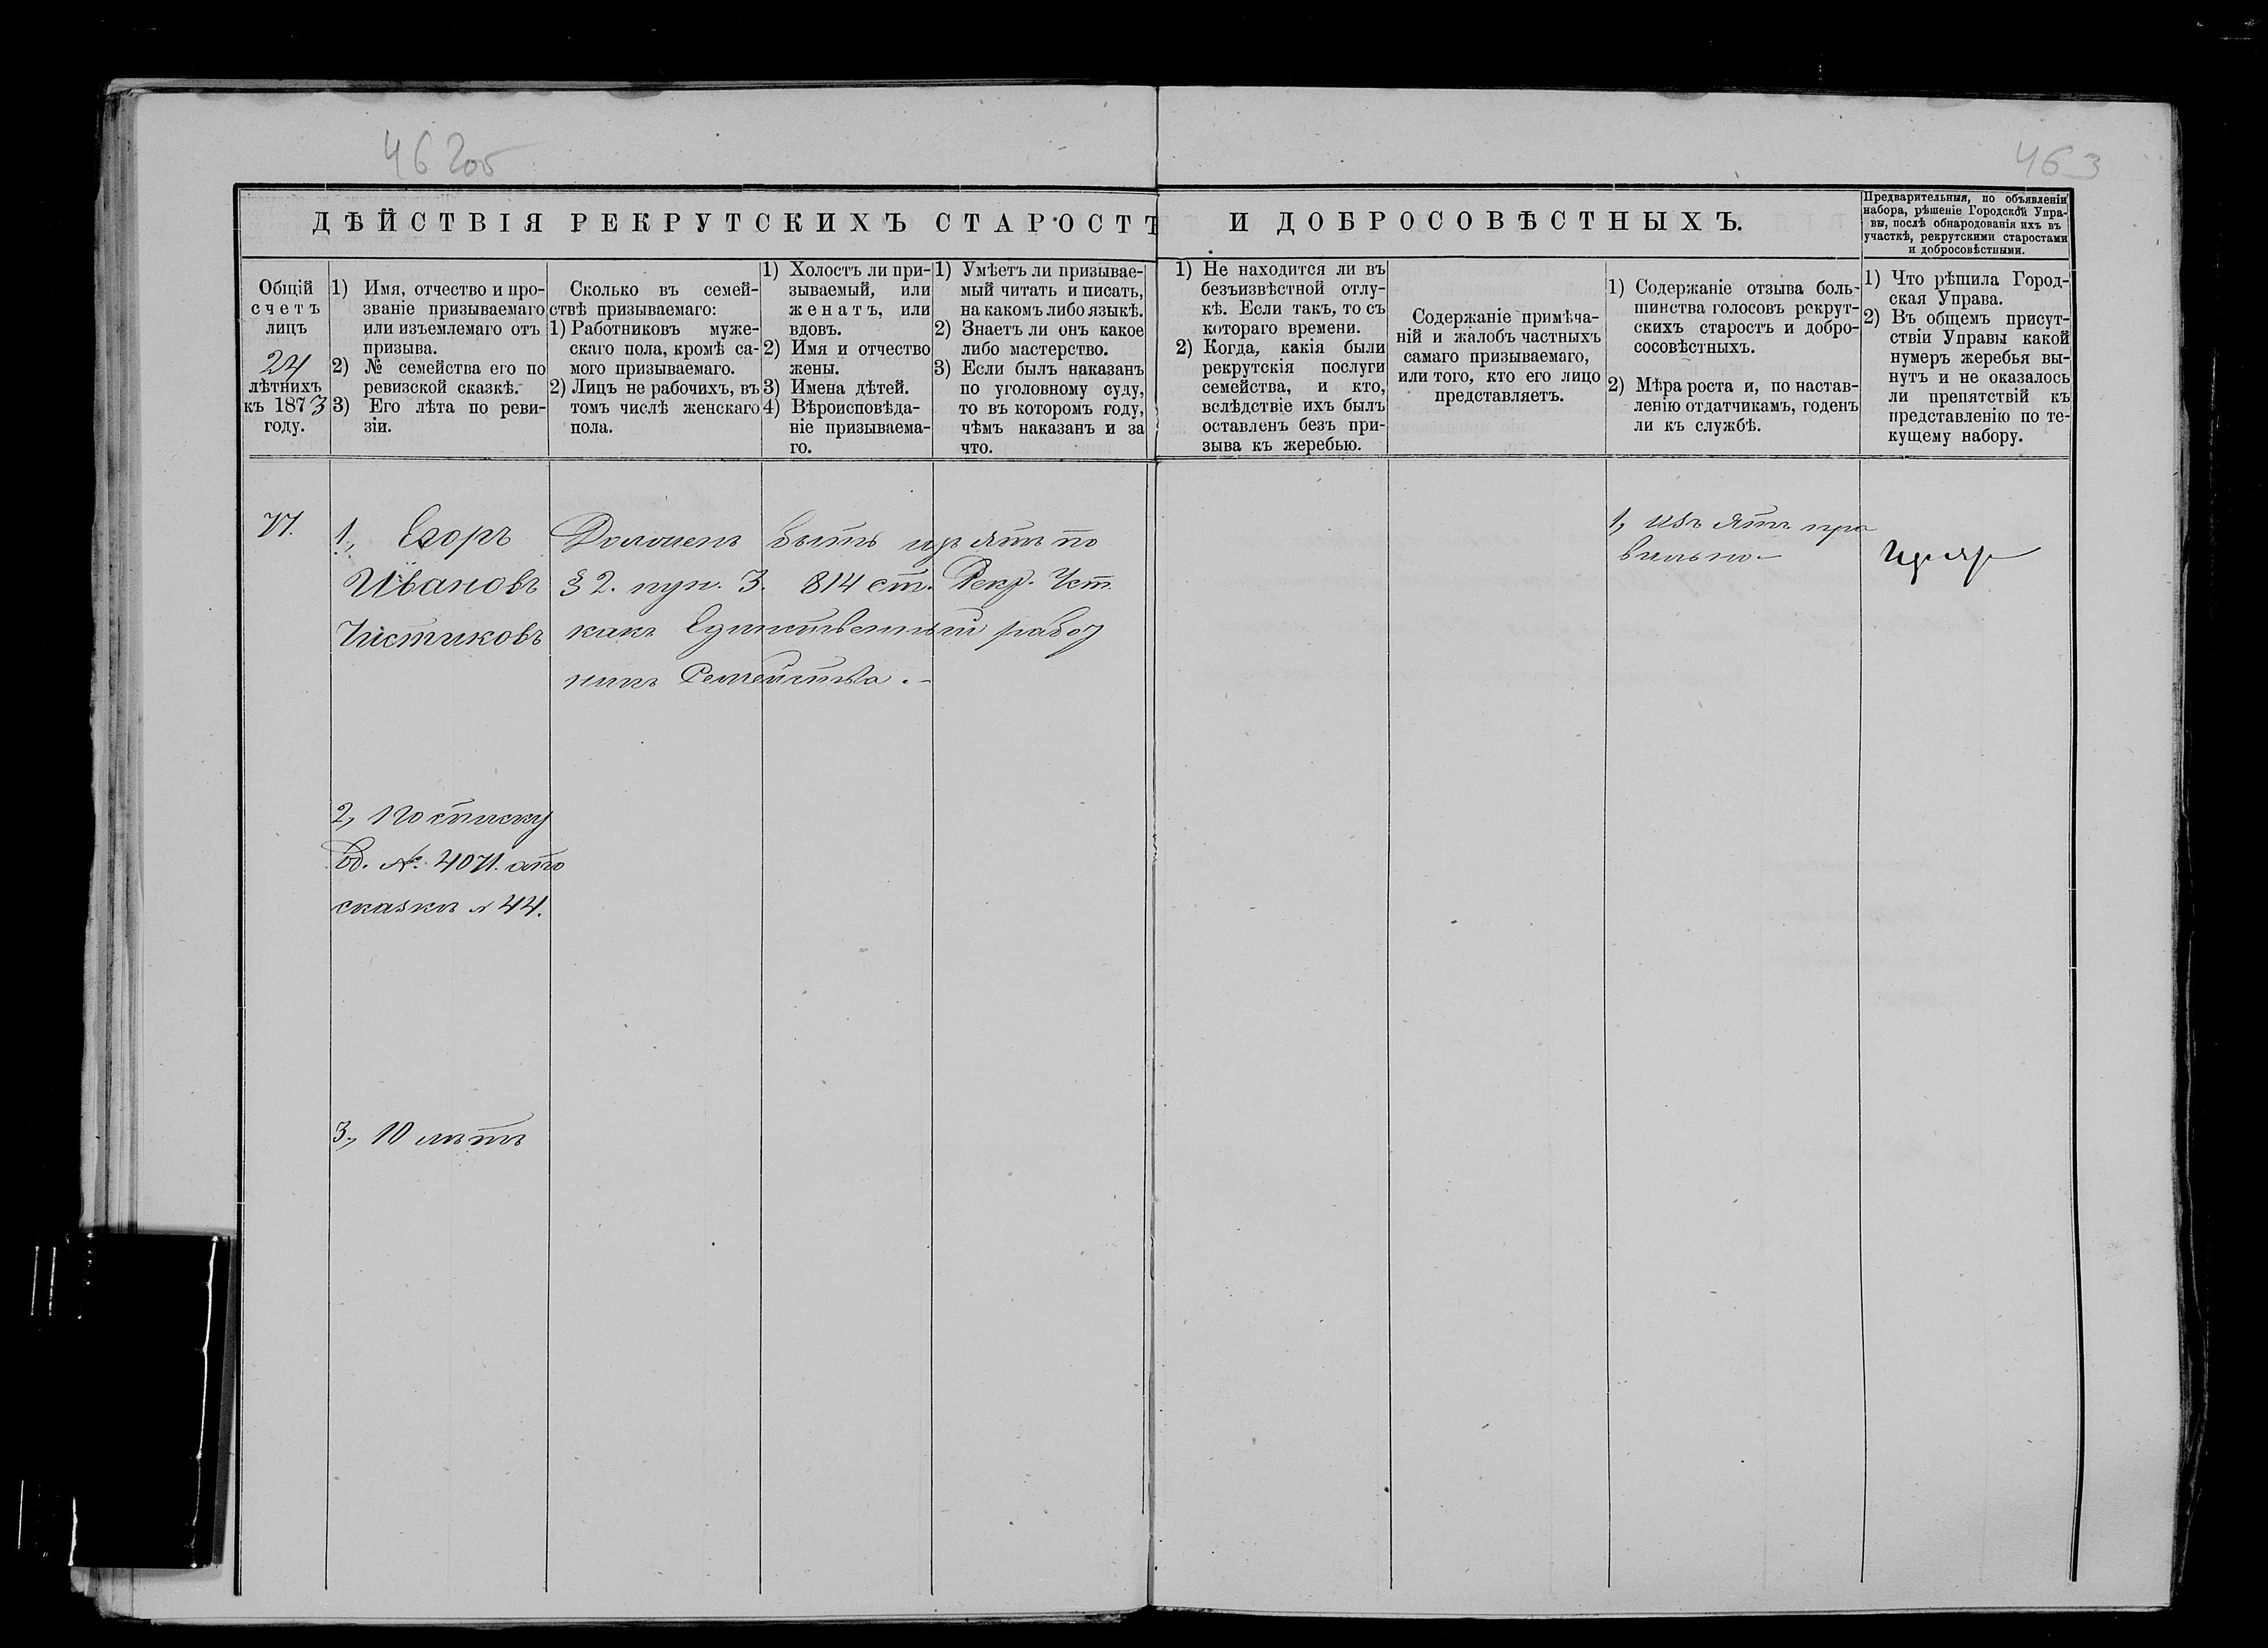 462об
463
ДѢЙСТВІЯ РЕКРУТСКИХЪ СТАРОСТЪ И ДОБРОСОВѢСТНЫХЪ.
Предварительныя, по объявленіи
набора, рѣшеніе Городской Упра-
вы, послѣ обнародованія ихъ въ
участкѣ, рекрутскими старостами
и добросовѣстными.
Общій
счетъ
лицъ
24
лѣтнихъ
къ 1873
году.
1) Имя, отчество и про-
званіе призываемаго
или изъемлемаго отъ
призыва.
2) № семейства его по
ревизской сказкѣ.
3) Его лѣта по реви-
зіи.
Сколько въ семей-
ствѣ призываемаго:
1) Работниковъ муже-
скаго пола, кромѣ са-
мого призываемаго.
2) Лицъ не рабочихъ, въ
томъ числѣ женскаго
пола.
1) Холостъ ли при-
зываемый, или
женатъ, или
вдовъ.
2) Имя и отчество
жены.
3) Имена дѣтей.
4) Вѣроисповѣда-
ніе призываема-
го.
1) Умѣетъ ли призывае-
мый читать и писать,
на какомъ либо языкѣ.
2) Знаетъ ли онъ какое
либо мастерство.
3) Если былъ наказанъ
по уголовному суду,
то въ которомъ году,
чѣмъ наказанъ и за
что.
1) Не находится ли въ
безъизвѣстной отлу-
кѣ. Если такъ, то съ
котораго времени.
2) Когда, какія были
рекрутскія послуги
семейства, и кто,
вслѣдствіе ихъ былъ
оставленъ безъ при-
зыва къ жеребью.
Содержаніе примѣча-
ній и жалобъ частныхъ
самаго призываемаго,
или того, кто его лицо
представляетъ.
1) Содержаніе отзыва боль-
шинства голосовъ рекрут-
скихъ старостъ и добро-
сосовѣстныхъ.
2) Мѣра роста и, по настав-
ленію отдатчикамъ, годенъ
ли къ службѣ.
1) Что рѣшила Город-
ская Управа.
2) Въ общемъ присут-
ствіи Управы какой
нумеръ жеребья вы-
нутъ и не оказалось
ли препятствій къ
представленію по те-
кущему набору.
71.
1, Егоръ
Ивановъ
Чистиковъ
Долженъ быть изъятъ по
§ 2. пун. 3. 814 ст. Рекр. Уст.
какъ Единственный работ
никъ Семейства.
1, изъятъ пра
вильно
2, По списку
Об. № 4071. а по
сказкѣ № 44.
3, 10 лѣтъ